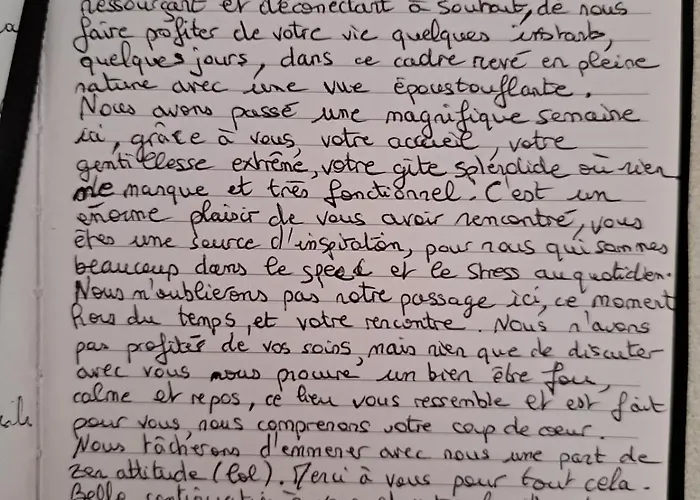 ressourçant et déconectant à souhait, de nous
faire profiter de votre vie quelques instants,
quelques jours, dans ce cadre revé en pleine
nature avec une vue époustouflante.
Nous avons passé une magnifique semaine
ici, grâce à vous, votre accueil, votre
gentillesse extrême, votre gîte splendide où rien
ne manque et très fonctionnel. C'est un
énorme plaisir de vous avoir rencontré, vous
êtes une source d'inspiration, pour nous qui sommes
beaucoup dans le speed et le stress au quotidien.
Nous n'oublierons pas notre passage ici, ce moment
hors du temps, et votre rencontre. Nous n'avons
pas profités de vos soins, mais rien que de discuter
avec vous nous procure un bien être fou,
calme et repos, ce lieu vous ressemble et est fait
pour vous, nous comprenons votre coup de coeur.
Nous tâcherons d'emmener avec nous une part de
zen attitude (lol). Merci à vous pour tout cela.
Belle continuation à